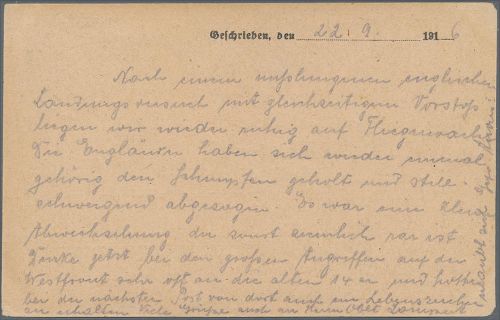 Geschrieben, den 22. 9. 1916
Nach einem mißlungenen englischen
Landungsversuch mit gleichzeitigem Vorstoß
liegen wir wieder ruhig auf Fliegerwacht
Die Engländer haben sich wieder einmal
gehörig den Schnupfen geholt und still
schweigend abgezogen. Es war eine kleine
Abwechselung die sonst ziemlich rar ist
Denke jetzt bei den großen Angriffen auf der
Westfront sehr oft an die alten 14 er und hoffe
bei der nächsten Post von dort auch ein Lebenszeichen
zu erhalten Viele Grüße auch an Herrn Oblt.